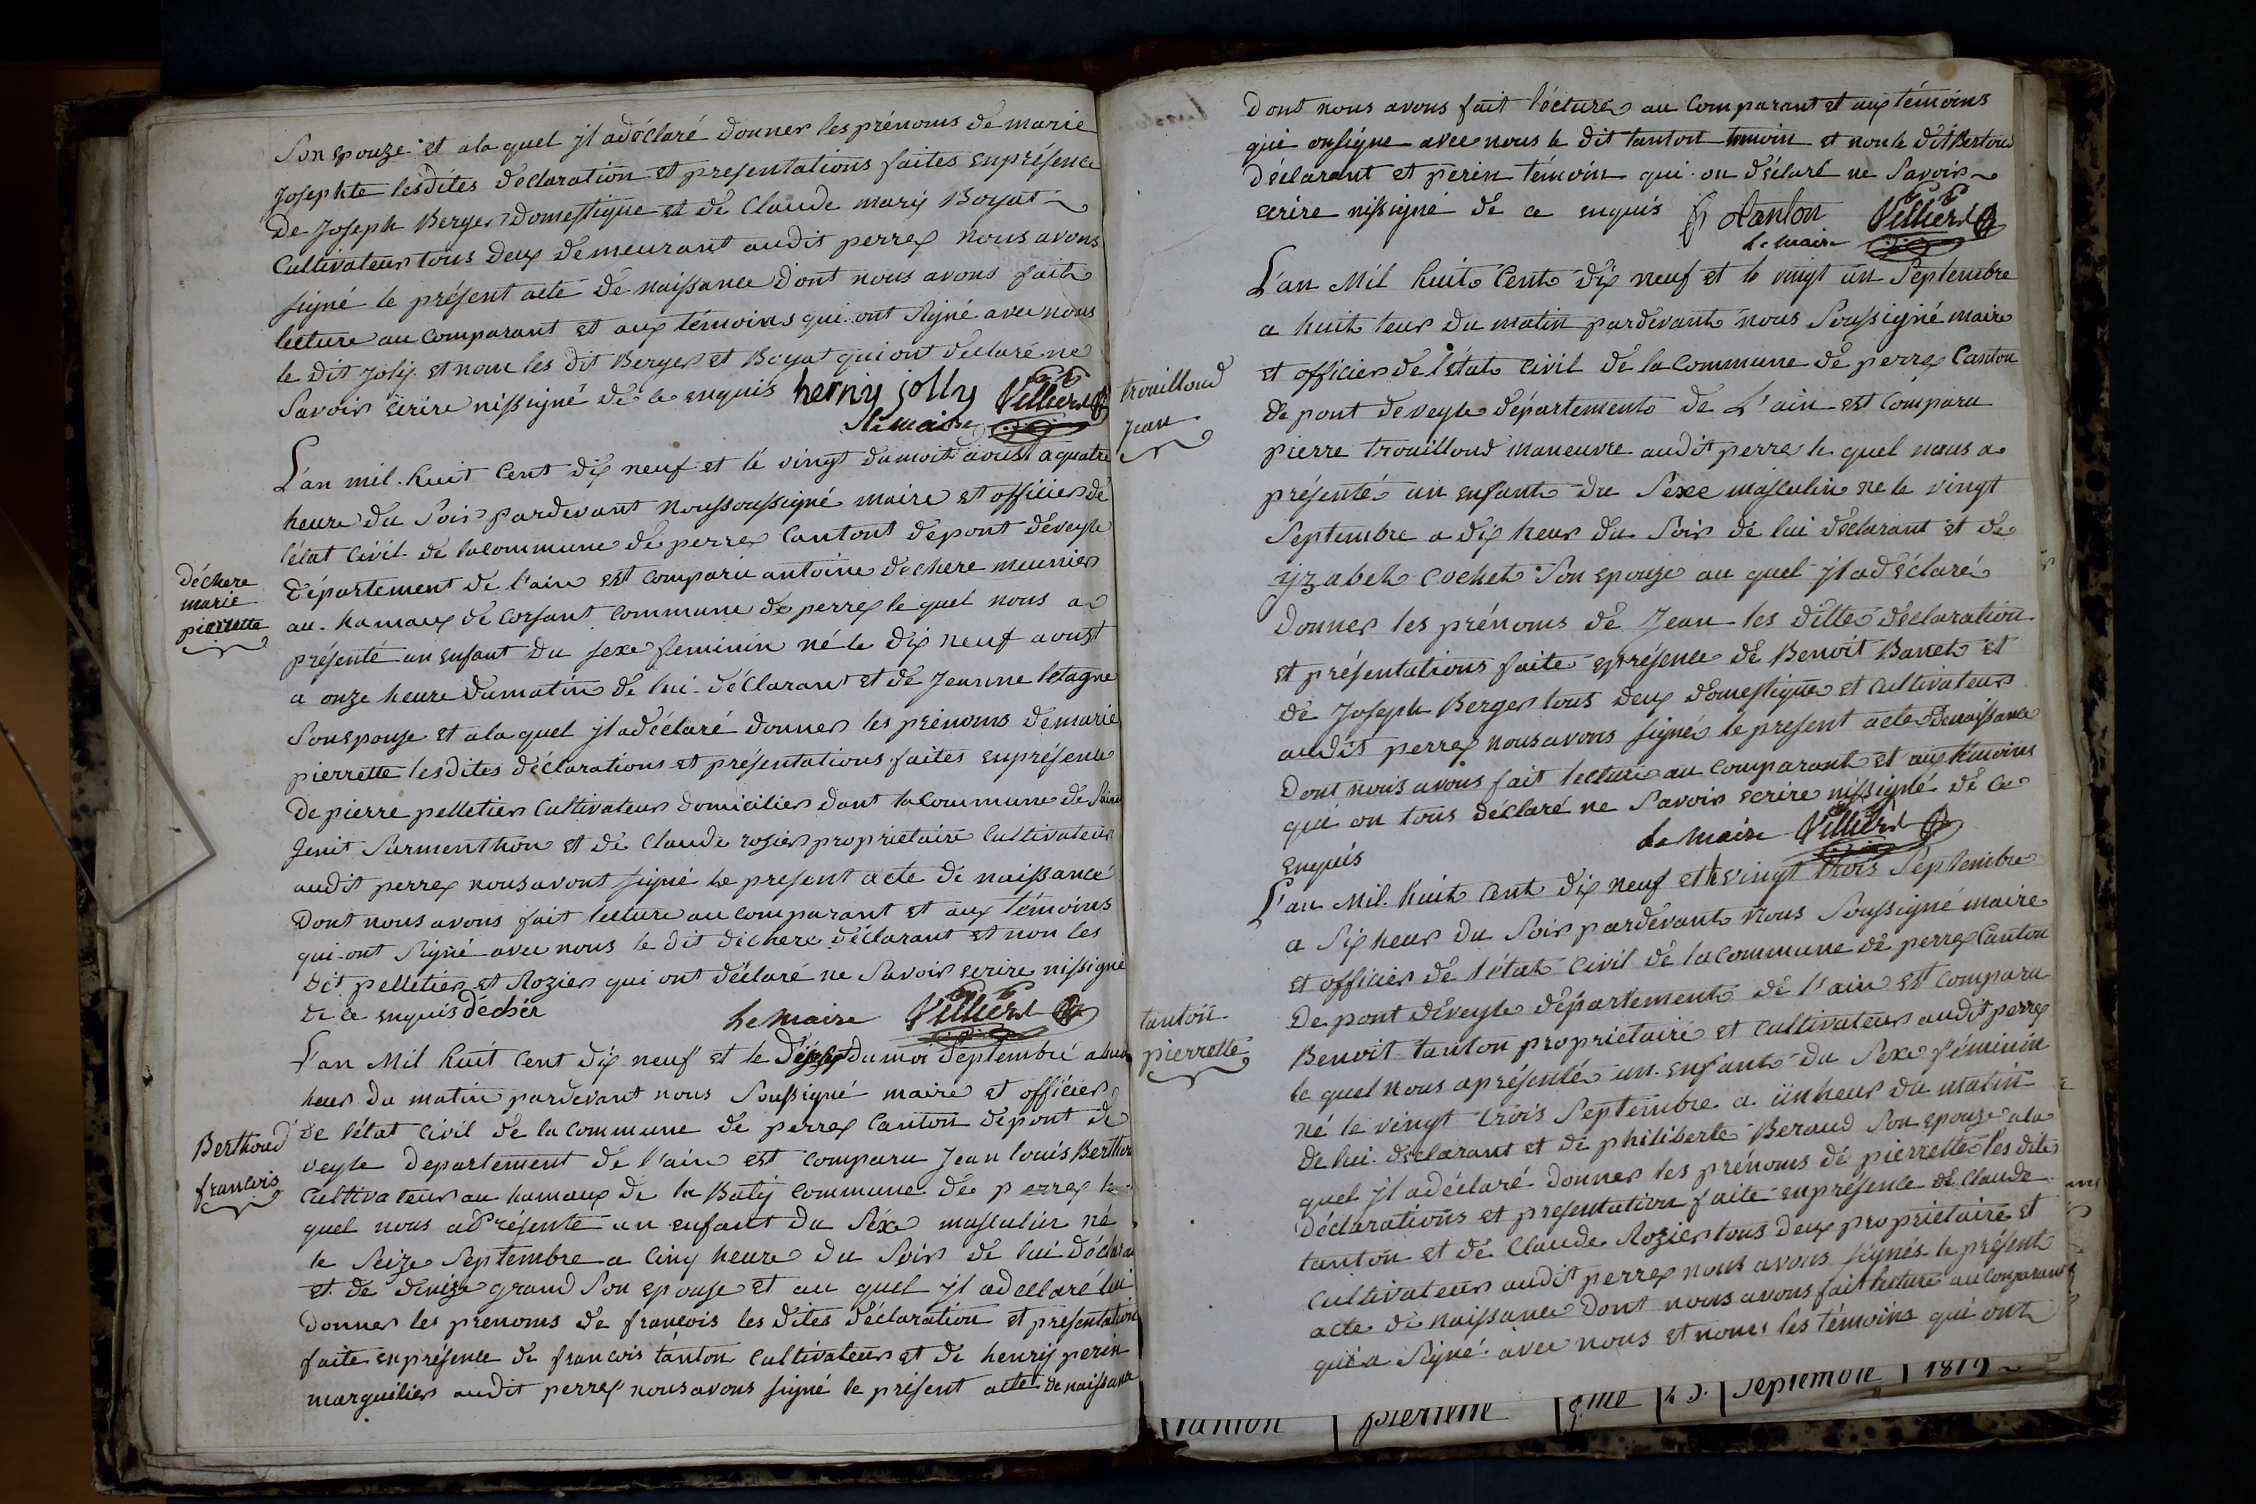 Son epouze et ala quel jl adéclaré donner les prénoms de marie
Josephte lesdites déclaration et presentations faites enprésence
De Joseph Berger Domestique et de Claude mary Boyat
Cultivateur tous deux demeurant audit perrex nous avons
signé le présent acte de naissance dont nous avons fait
lecture au comparant et aux témoins qui ont signé avec nous
le dit Joly et nom les dit Berger et Boyat qui ont déclaré ne
Savoir écrire nissigné de ce enquis henriy jolly Villierd
le maire
L'an mil huit Cent dix neuf et le vingt dumois d'aoust a quatre
heure du Soir pardevant noussoussigné maire et officier de
l'état Civil de lacommune de perrex Cantont depont deveyle
département de l'ain est comparu antoine dechere meunier
au hamaux de Corsant commune de perrex le quel nous a
présenté un enfant du sexe feminin né le dix neuf aoust
a onze heure dumatin de lui déclarant et de Jeanne letagne
Sonepouse et ala quel jl adéclaré donner les prenoms demarie
pierrette lesdites déclarations et présentations faites enprésence
De pierre pelletier Cultivateur domicilier dant la Commune de Saint
Genit Surmenthon et de Claude rosier propriétaire Cultivateur
audit perrex nousavont signé le present acte de naissance
Dont nous avons fait lecture au comparant et aux témoins
qui ont signé avec nous le dit dechere déclarant et non les
dit pelletier et Rozier qui ont déclaré ne Savoir ecrire nissigné
de ce enquis décher le Maire Villierd
déchere
marie
pierrette
L'an Mil huit Cent dix neuf et le du moi Septembre a huit
heur du matin pardevant nous Soussigné maire et officier
de l'état Civil de la commune de perrex Canton depont de
veyle departement de l'ain est comparu Jean louis Berthoud
Cultivateur au hamaux de la Baty commune de perrex le
quel nous a présenté un enfant du Séxe masculin né
le Seize Septembre a Cinq heure du Soir de lui déclarant
et de denize grand Son epouse et au quel jl adeclaré lui
donner les prenoms de francois les dites déclaration et presentation
faite enprésence de francois tanton Cultivateur et de henry perin
marguilier audit perrex nousavons signé le présent acte de naissance
Berthoud
francois
dont nous avons fait l'écture au comparant et aux témoins
qui onsigne avec nous le dit tanton temoin et non le dit Bertoud
déclarant et perin témoin qui on déclaré ne Savoir
ecrire nissigné de ce enquis f tanton Villierd
le maire
L'an Mil huit Cent dix neuf et le vingt un Septembre
a huit heur du matin pardevant nous Soussigné maire
et officier de l'état civil de la Commune de perrex Canton
de pont de veyle département de L'ain est Comparu
pierre trouilloud maneuvre audit perrex le quel nous a
présenté un enfant du Sexe masculin ne le vingt
Septembre a dix heur du Soir de lui déclarant et de
yzabel cochet Son epouze au quel jl adéclaré
donner les prénoms de Jean les ditte declaration
et présentations faite enprésence de Benoit Banet et
de Joseph Berger tous deux domestique et Cultivateur
audit perrex nousavons signé le present acte denaissance
Dont nous avons fait lecture au comparant et aux témoins
qui on tous déclaré ne Savoir ecrire nissigné de ce
enquis le maire Villierd
trouilloud
jean
L'an Mil huit cent dix neuf et le vingt trois Septembre
a Six heur du Soir pardevant nous Soussigné maire
et officier de l'état civil de la commune de perrex Canton
De pont de veyle département de l'ain est comparu
Benoit tanton propriétaire et cultivateur audit perrex
le quel nous aprésenté un enfant du Sexe féminin
né le vingt trois Septembre a un heur du matin
de lui déclarant et de philiberte Beraud Son epouze ala
quel jl adéclaré donner les prénoms de pierrette les dites
déclarations et presentation faite enprésence de Claude
tanton et de Claude Rozier tous deux propriétaire et
cultivateur audit perrex nous avons signés le présent
acte de naissance dont nous avons fait lecture au comparant
qui a Signé avec nous et nom les témoins qui ont
tanton
pierrette
tanton pierrette 23. Septembre 1819